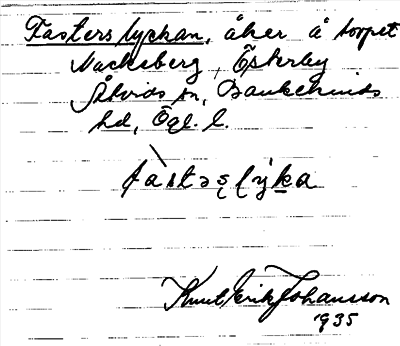 Fasterslyckan, åker å torpet
Nackeberg, Österby
Åtvids sn, Bankekinds
hd, Ögl. l.
fàstəsļýka
Knut Erik Johansson
1935